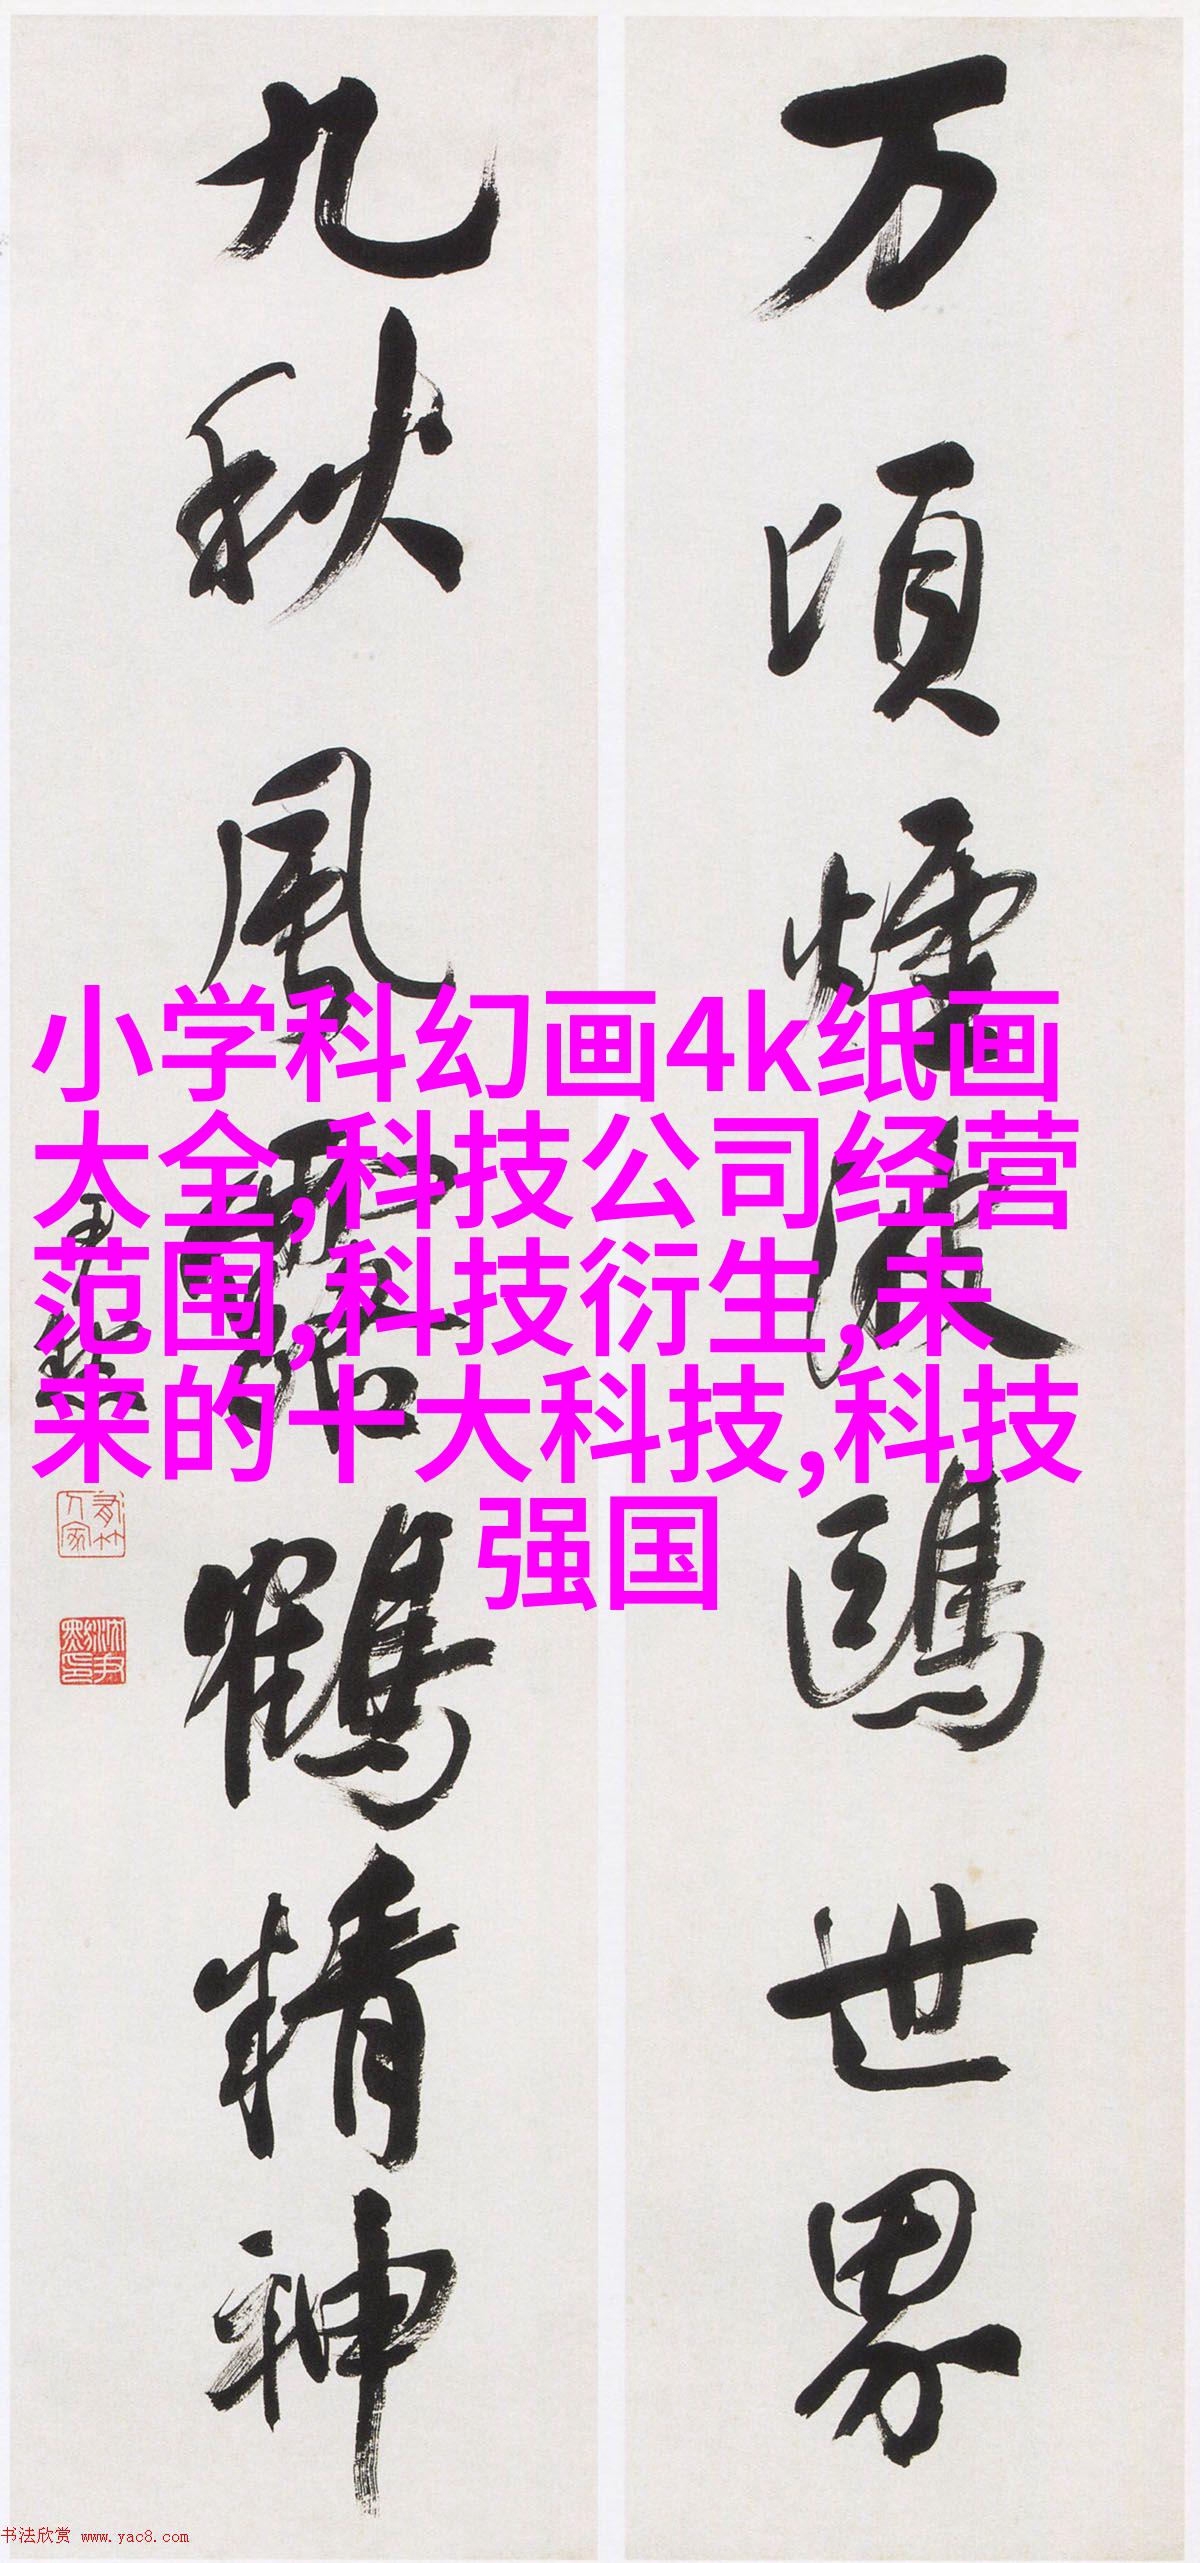 万頃煙波鷗世界
九秋風露鶴精神
尹默
沈尹默印
小学科幻画4k纸画
大全,科技公司经营
范围,科技衍生,未
来的十大科技,科技
强国
书法欣赏 www.yac8.com